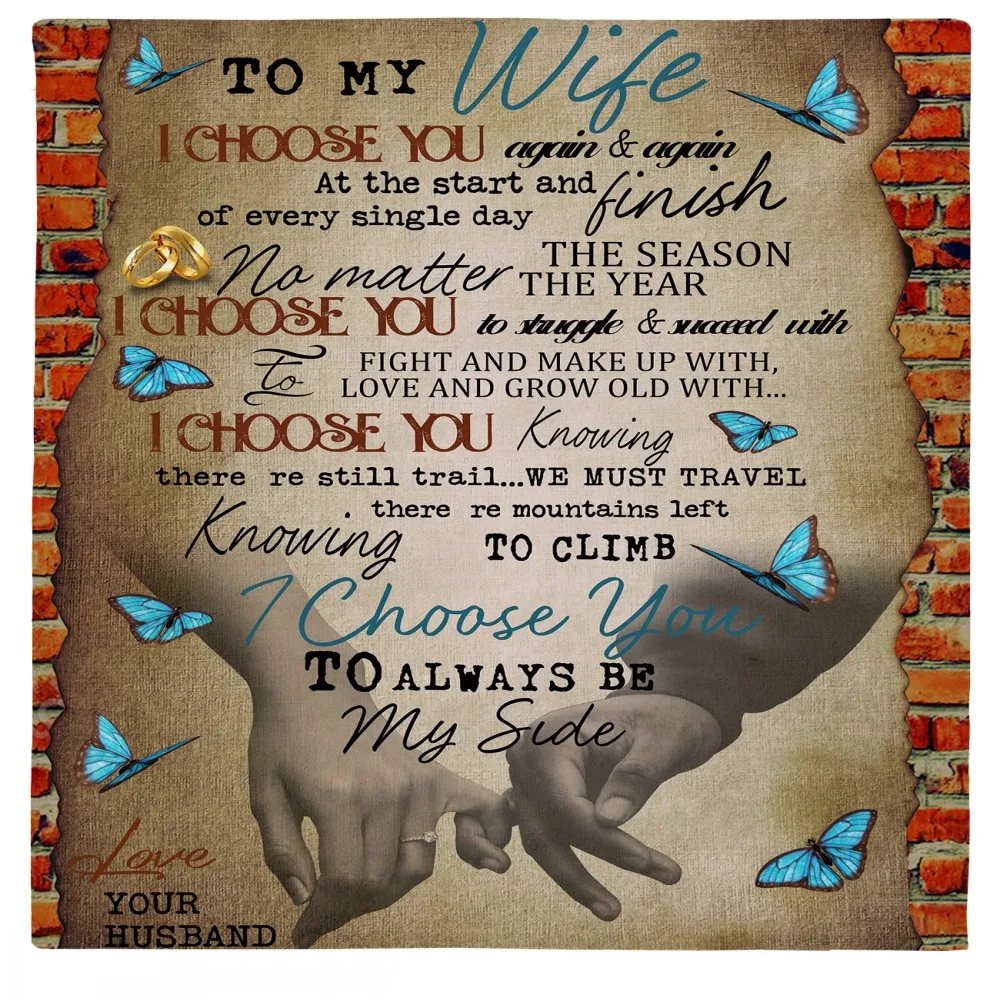 TO MY Wife
I CHOOSE YOU again & again
At the start and finish
of every single day
No matter THE SEASON
THE YEAR
I CHOOSE YOU to struggle & succeed with
To FIGHT AND MAKE UP WITH,
LOVE AND GROW OLD WITH...
I CHOOSE YOU Knowing
there re still trail...WE MUST TRAVEL
Knowing there re mountains left
TO CLIMB
I Choose You
TO ALWAYS BE
My Side
Love
YOUR
HUSBAND